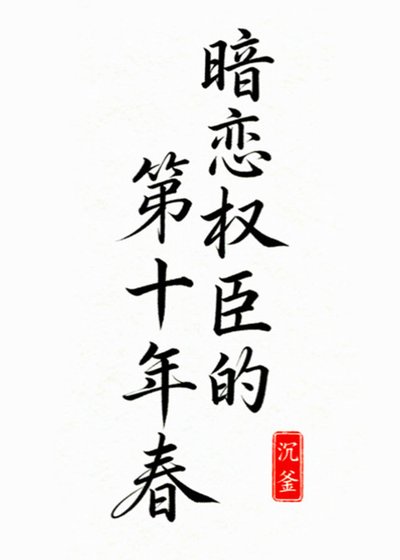 暗恋权臣的
第十年春
沉釜